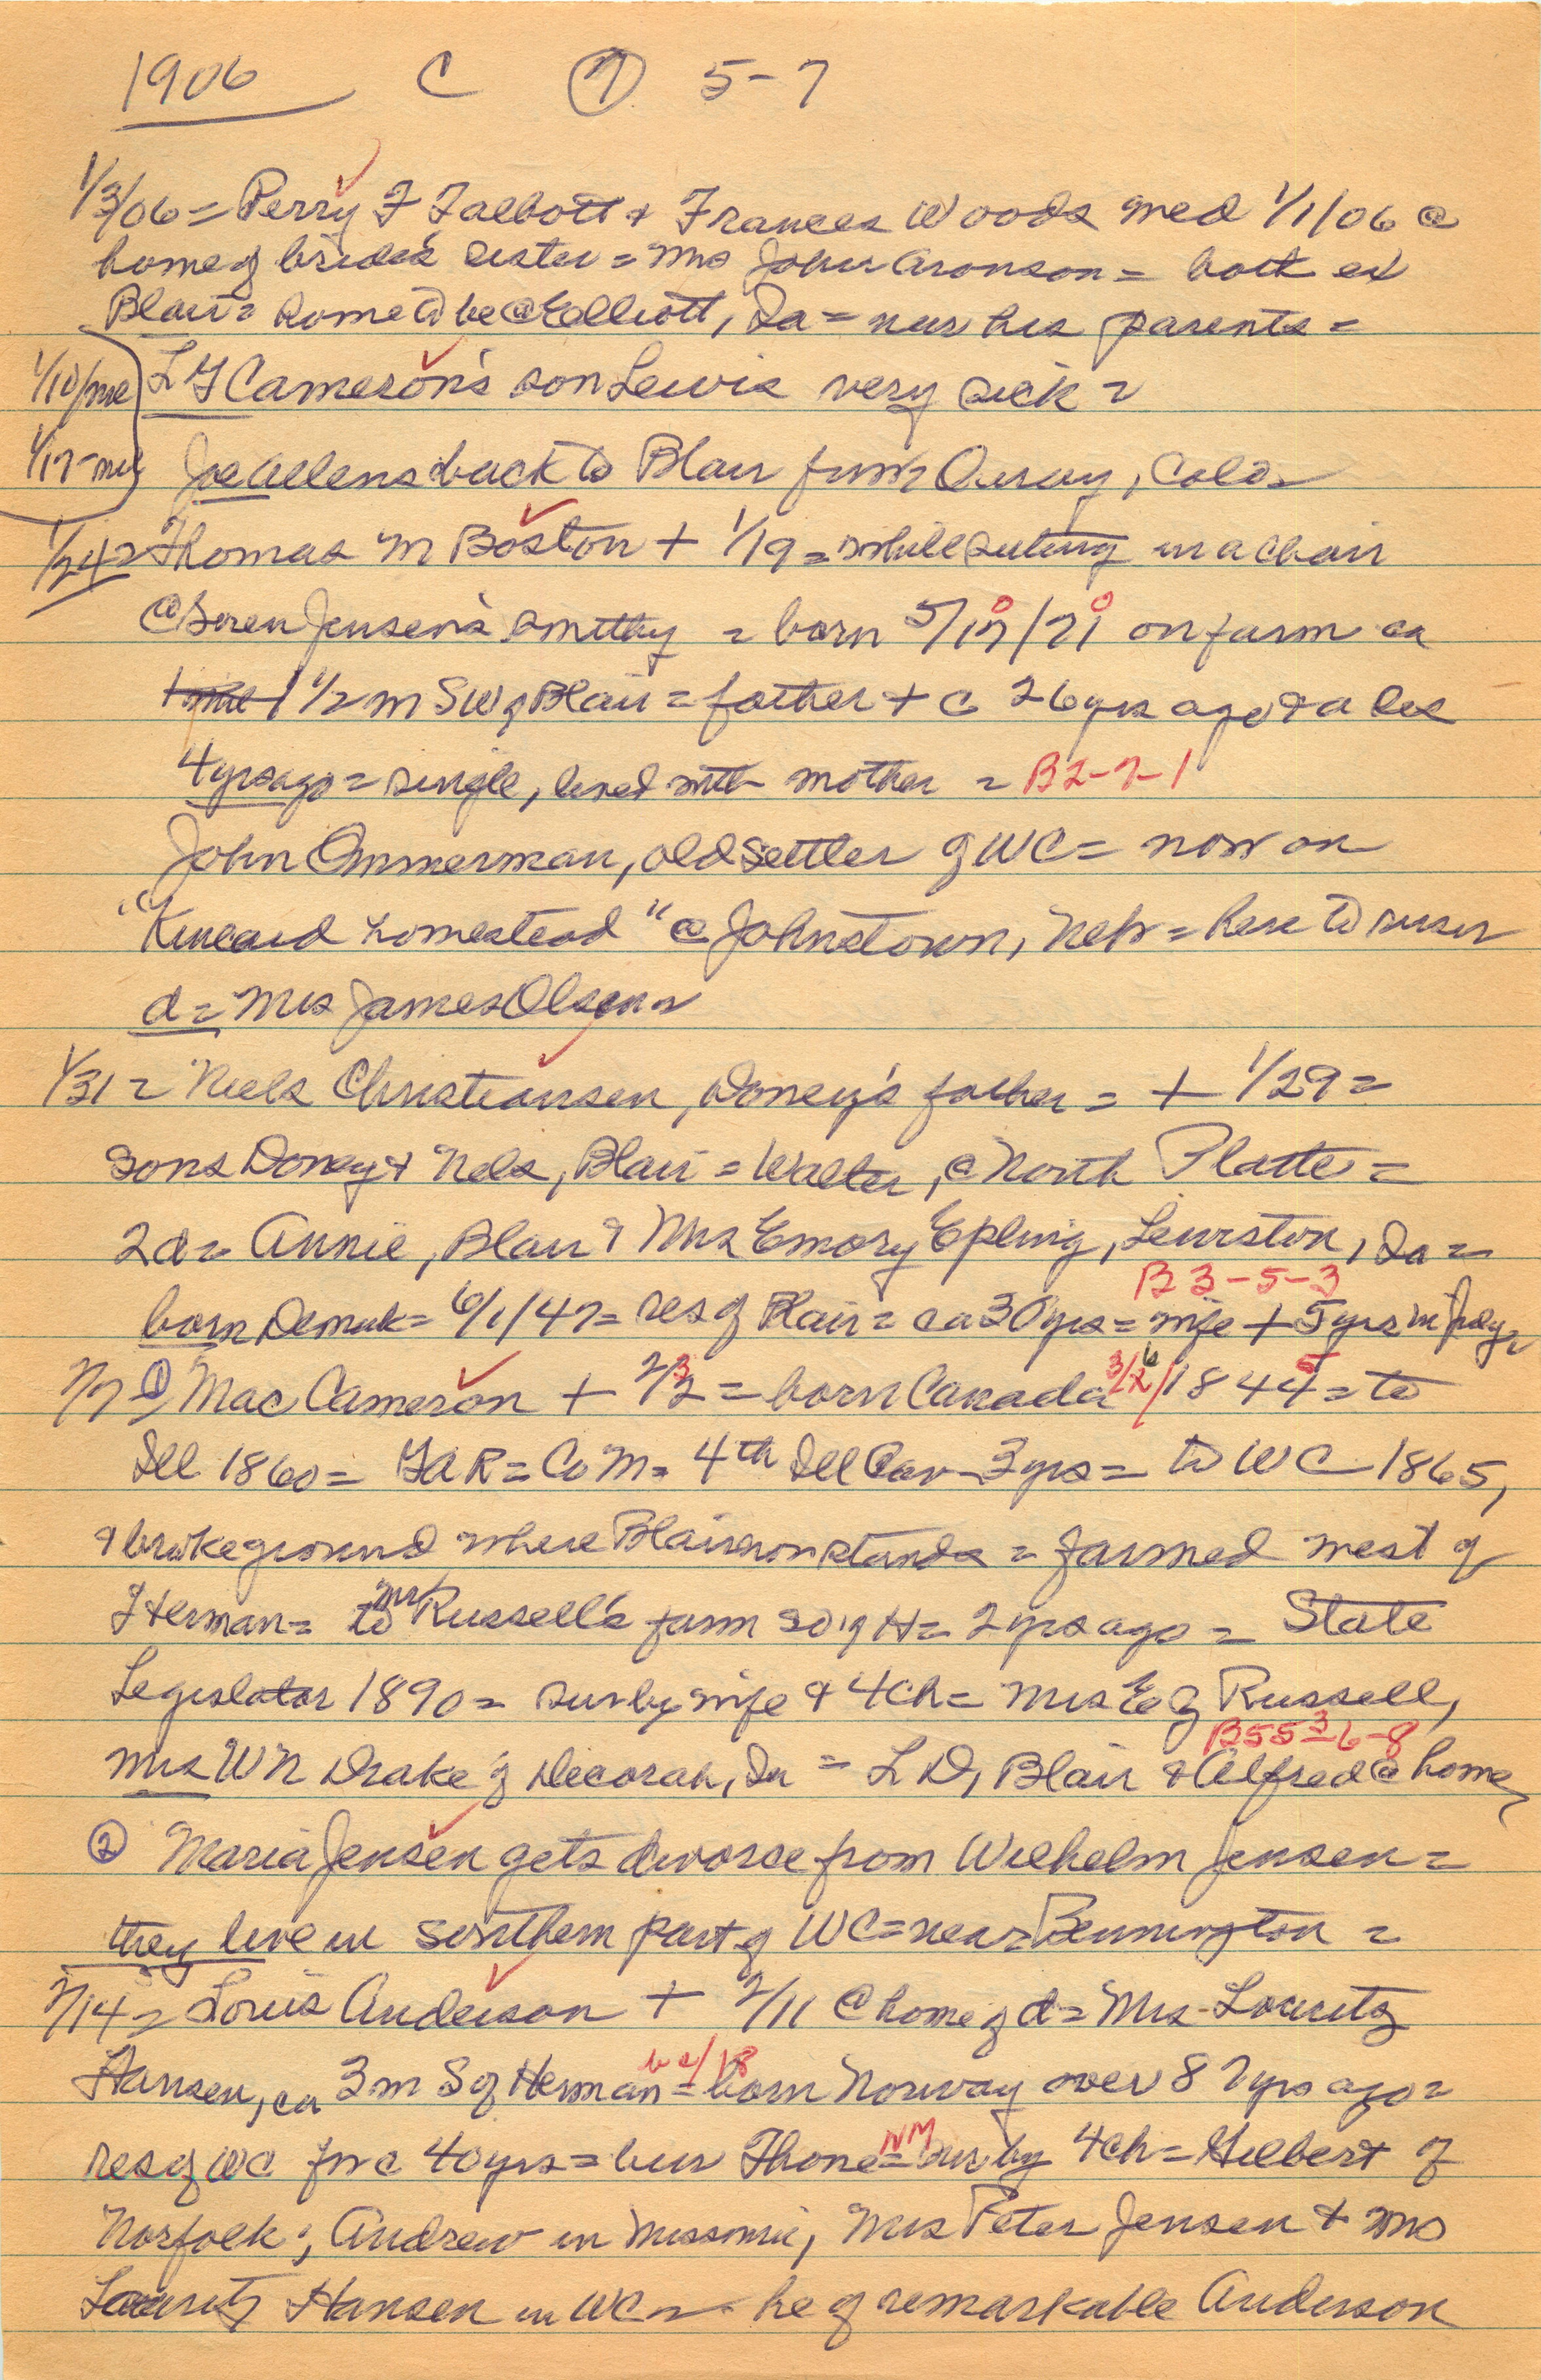 1906 C ⑦ 5-7
1/3/06 = Perry F Talbott & Frances Woods med 1/1/06 @
home of bride's sister = Mrs John Aronson = both ex
Blair = home to be @ Elliott, Ia = near his parents =
1/10/me L G Cameron's son Lewis very sick =
1/17 - Joe Allens back to Blair from Ouray, Colo =
1/24 = Thomas M Boston + 1/19 = while sitting in a chair
@ Soren Jensen's smithy = born 5/17/71 on farm ca
1 1/2 m SW of Blair = father + c 26 yrs ago & a
4 yrs ago = single, lived with mother = B2-7-1
John Ommerman, old settler of WC = now on
"Kincaid homestead" @ Johnstown, Neb = here to
d = Mrs James Olsen =
1/31 = Niels Christiansen, Doney's father = + 1/29 =
sons Doney & Nels, Blair = Walter, @ North Platte =
2d = Annie, Blair & Mrs Emory Epling, Lewiston, Ia =
B 3-5-3
born Denmk = 6/1/47 = res of Blair = ca 30 yrs = wife + 5 yrs in July =
2/7 ① Mac Cameron + 2/3 = born Canada 3/26/1844 = to
Ill 1860 = GAR = Co M = 4th Ill Cav - 3 yrs = to WC 1865,
& broke ground where Blair now stands = farmed west of
Herman = to Mr Russell's farm so of H = 2 yrs ago = State
Legislator 1890 = sur by wife & 4 ch = Mrs E G Russell,
B55-3 6-8
Mrs WN Drake of Decorah, Ia = L D, Blair & Alfred @ home
② Maria Jensen gets divorse from Wilhelm Jensen =
they live in southern part of WC = near Bennington =
2/14 = Louis Anderson + 2/11 @ home of d = Mrs Louritz
Hansen, ca 3 m S of Herman = born Norway over 87 yrs ago =
res of WC for c 40 yrs = bur Thone = sur by 4 ch = Gilbert of
NM
Norfolk; Andrew in Missouri, Mrs Peter Jensen & Mrs
Louritz Hansen in WC = he of remarkable Anderson